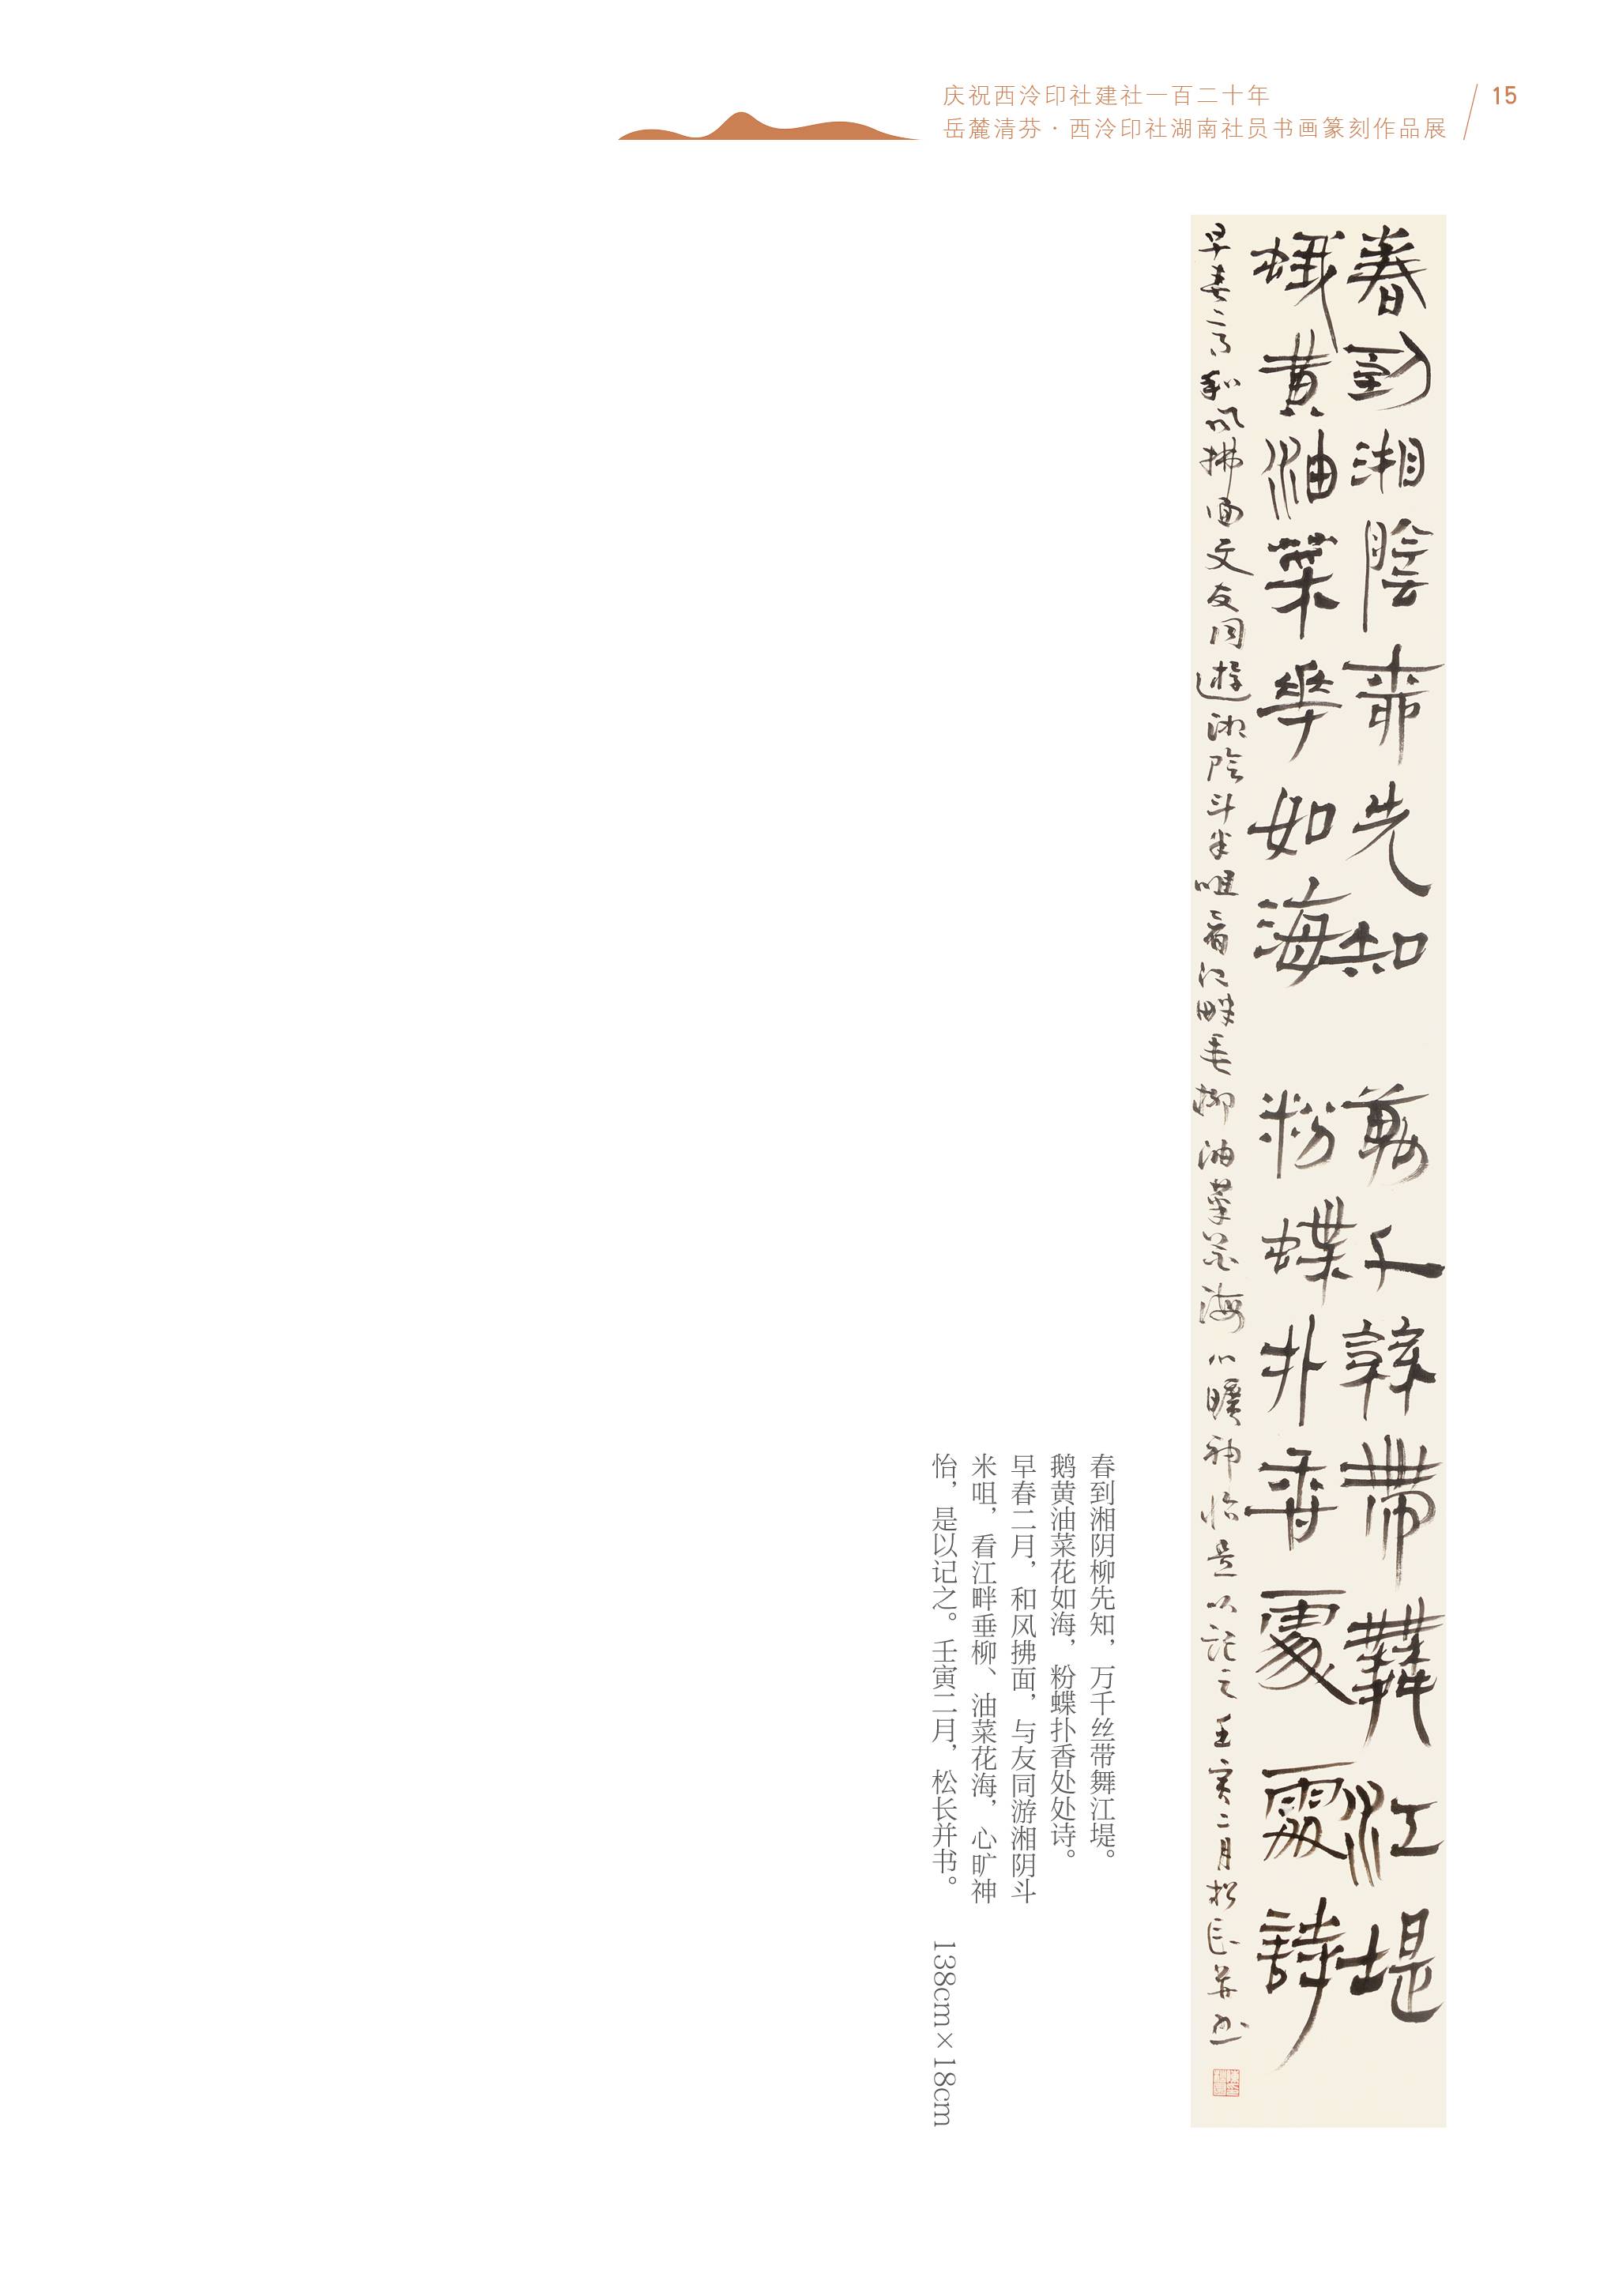 庆祝西泠印社建社一百二十年
岳麓清芬·西泠印社湖南社员书画篆刻作品展
15
春到湘陰桺先知 萬千絲帶舞江堤
蛾黄油菜華如海 粉蝶扑香處處詩
早春二月和風拂面文友同遊湘陰斗米咀看江畔垂柳油菜花海心曠神怡是以記之壬寅二月松長并書
春到湘阴柳先知，万千丝带舞江堤。
鹅黄油菜花如海，粉蝶扑香处处诗。
早春二月，和风拂面，与友同游湘阴斗
米咀，看江畔垂柳、油菜花海，心旷神
怡，是以记之。壬寅二月，松长并书。
138cm×18cm